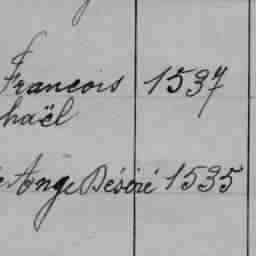 Francois 1537
haël
Ange Désiré 1535